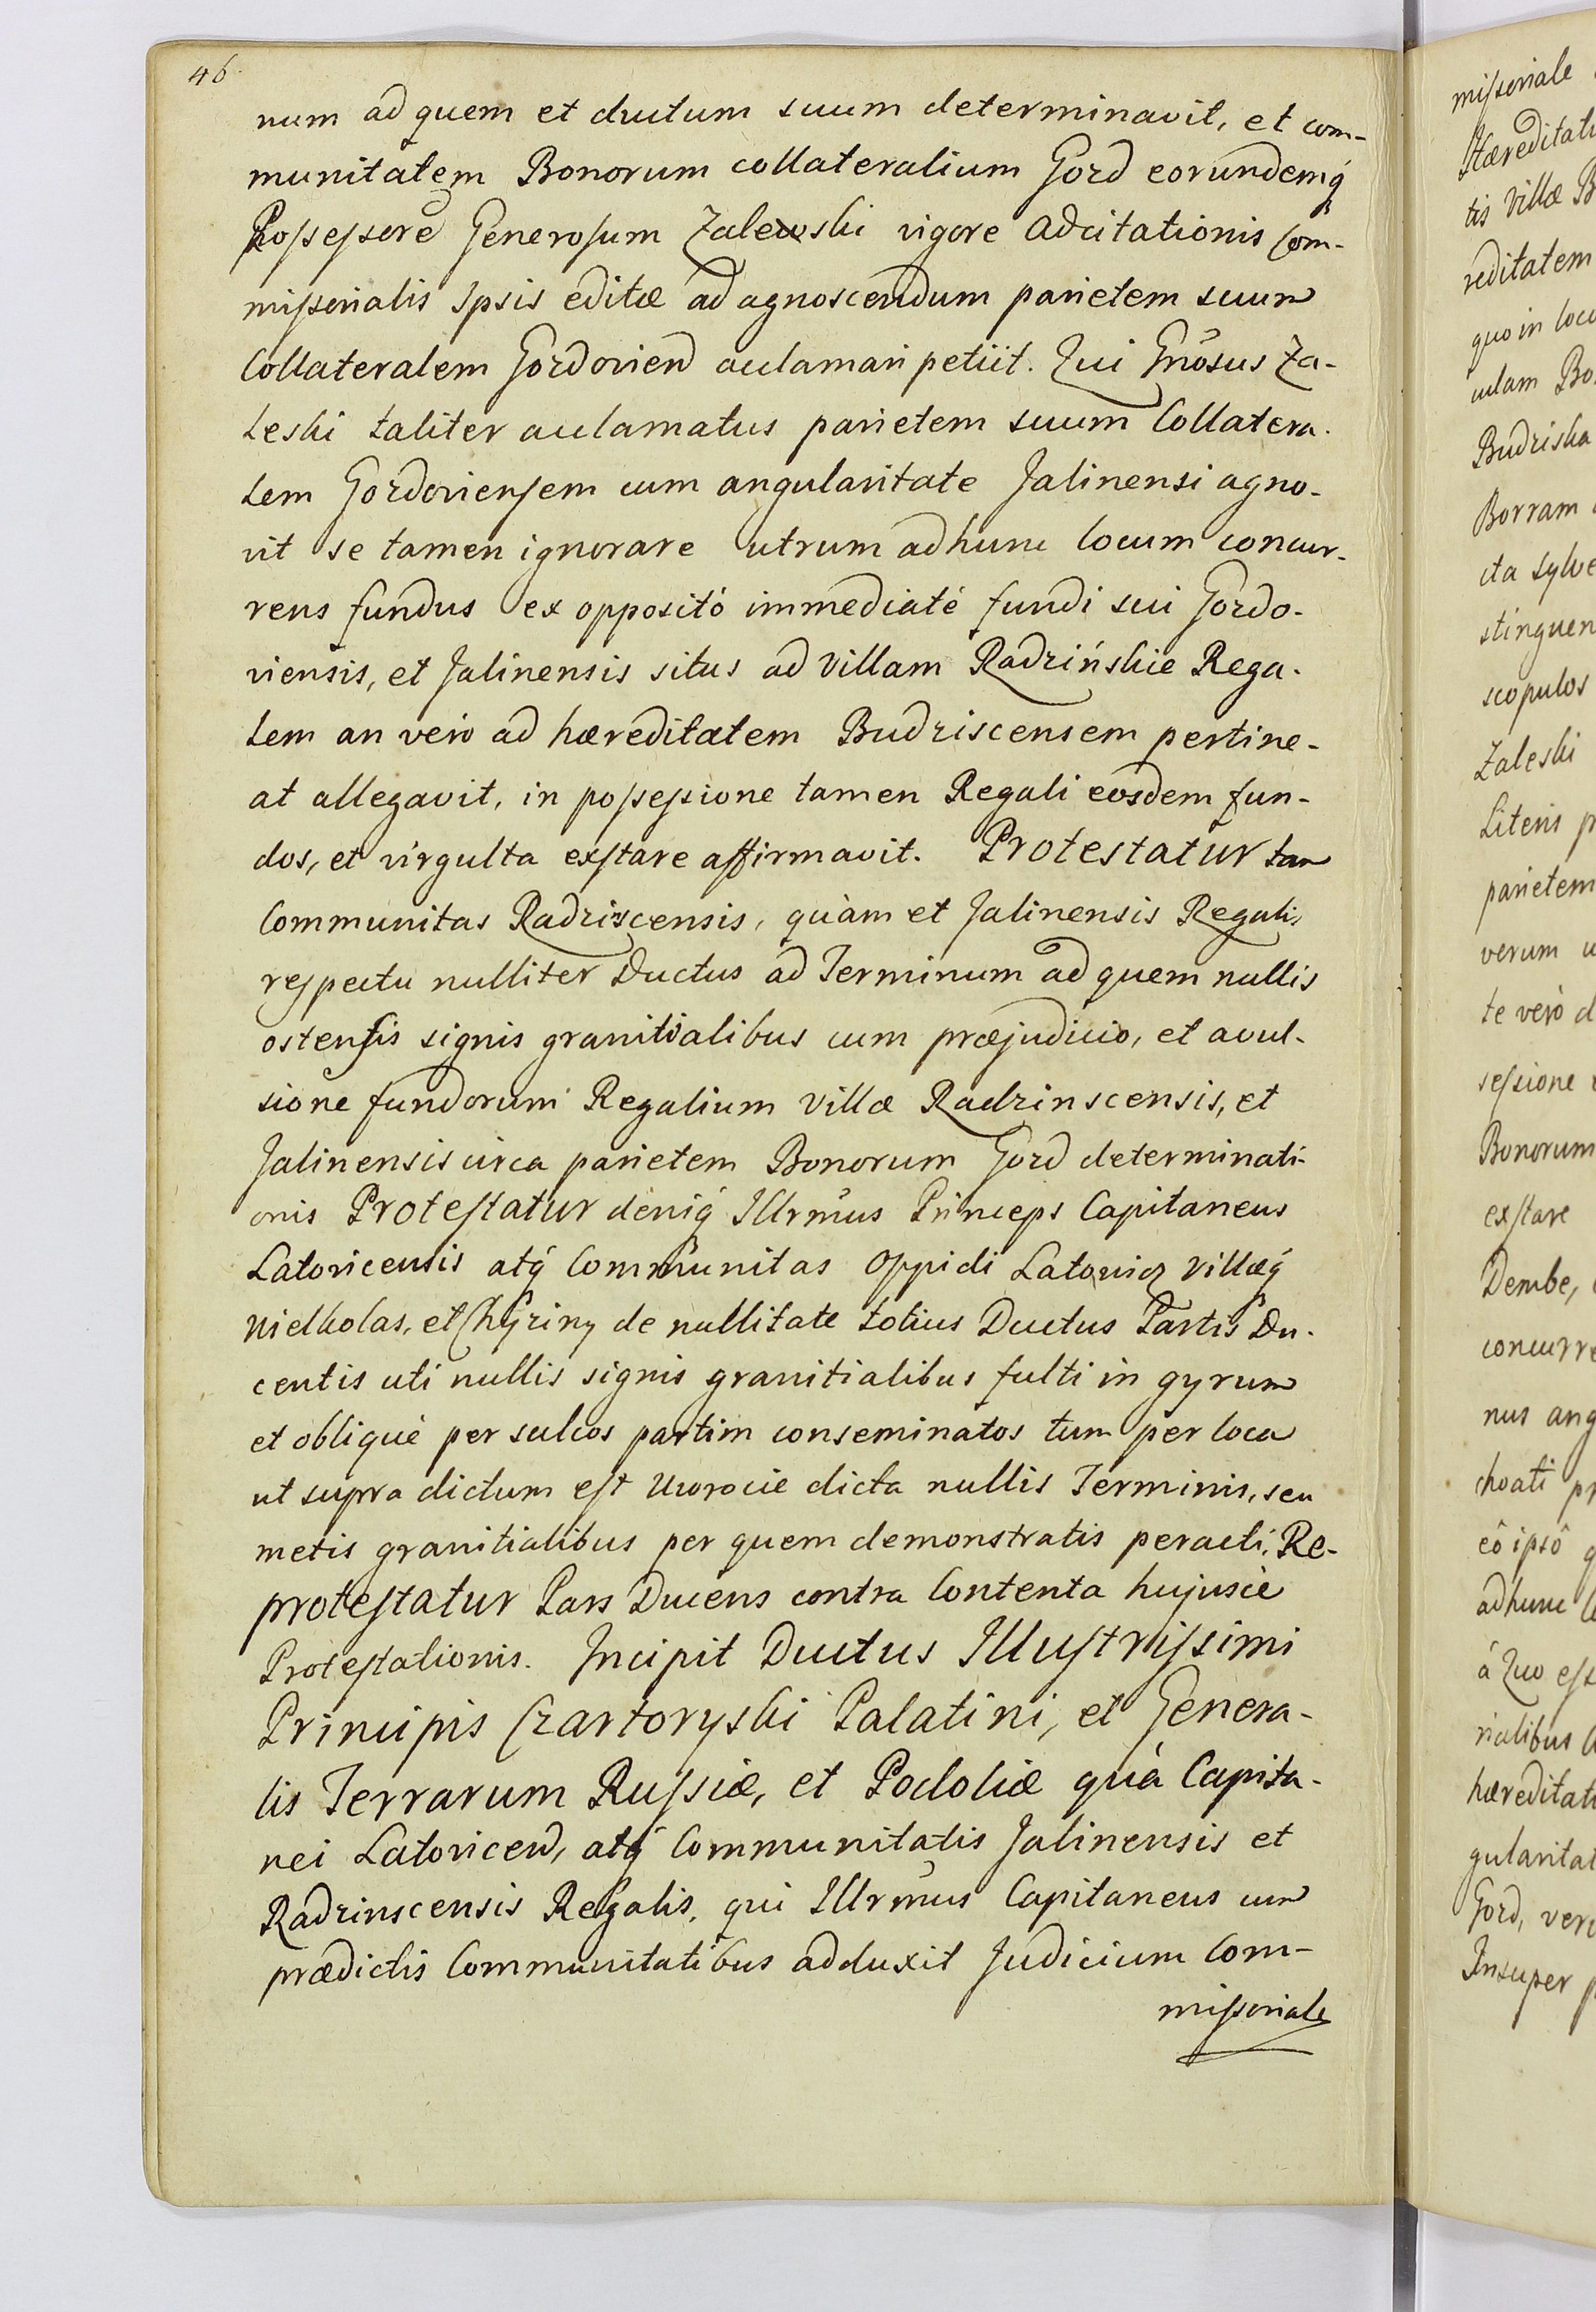 46.
num ad quem et ductum suum determinavit, et com-
munitatem Bonorum collateralium Gord eorundemq́
Possessorē Generosum Zalewski vigore adcitationis Com-
missorialis Ipsis editæ ad agnoscendum parietem suum
Collateralem Gordovien acclamari petiit. Qui Gnosus Za-
leski taliter acclamatus parietem suum Collatera-
lem Gordoviensem cum angularitate Jalinensi agno-
vit se tamen ignorare utrum ad hunc locum concur-
rens fundus ex oppositô immediatè fundi sui Gordo-
viensis, et Jalinensis situs ad Villam Radzińskie Rega-
lem an verò ad hæreditatem Budziscensem pertine-
at allegavit, in possessione tamen Regali eosdem fun-
dos, et virgulta exstare affirmavit. Protestatur tam
Communitas Radziscensis, quàm et Jalinensis Regalis
respectu nulliter Ductus ad Terminum ad quem nullis
ostensis signis granitialibus cum præjudicio, et avul-
sione fundorum Regalium Villæ Radzinscensis, et
Jalinensis circa parietem Bonorum Gord determinati-
onis Protestatur deniq́ Illrmus Princeps Capitaneus
Latovicensis atq́ Communitas Oppidi Latovicz villæq́
Wielkolas, et Chyziny de nullitate totius Ductus Partis Du-
centis uti nullis signis granitialibus fulti in gyrum
et obliquè per sulcos partim conseminatos tum per loca
ut supra dictum est Uwrocie dicta nullis Terminis, seu
metis granitialibus per quem demonstratis peracti. Re-
protestatur Pars Ducens contra Contenta hujusce
Protestationis. Incipit Ductus Illustrissimi
Principis Czartoryski Palatini, et Genera-
lis Terrarum Russiæ, et Podoliæ quà Capita-
nei Latovicen, atq́ Communitatis Jalinensis et
Radzinscensis Regalis, qui Illrmus Capitaneus cum
prædictis Communitatibus adduxit Judicium Com-
missoriale
missoriale
Hæreditat
tis Villæ B
reditatem
quo in loco
culam Bo
Budziska
Borram
cta sylve
stinguen
scopulos
Zaleski
Literis p
parietem
verum u
te verò d
sessione
Bonorum
exstare
Dembe,
concurre
nus ang
choati pr
eô ipsô q
ad hunc
à Quo est
rialibus
hæreditat
gularitat
Gord, vero
Insuper p